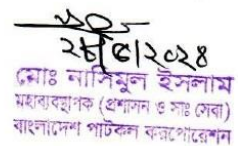 ২৮|৫|২০২৪
মোঃ নাসিমুল ইসলাম
মহাব্যবস্থাপক (প্রশাসন ও সাঃ সেবা)
বাংলাদেশ পাটকল করপোরেশন